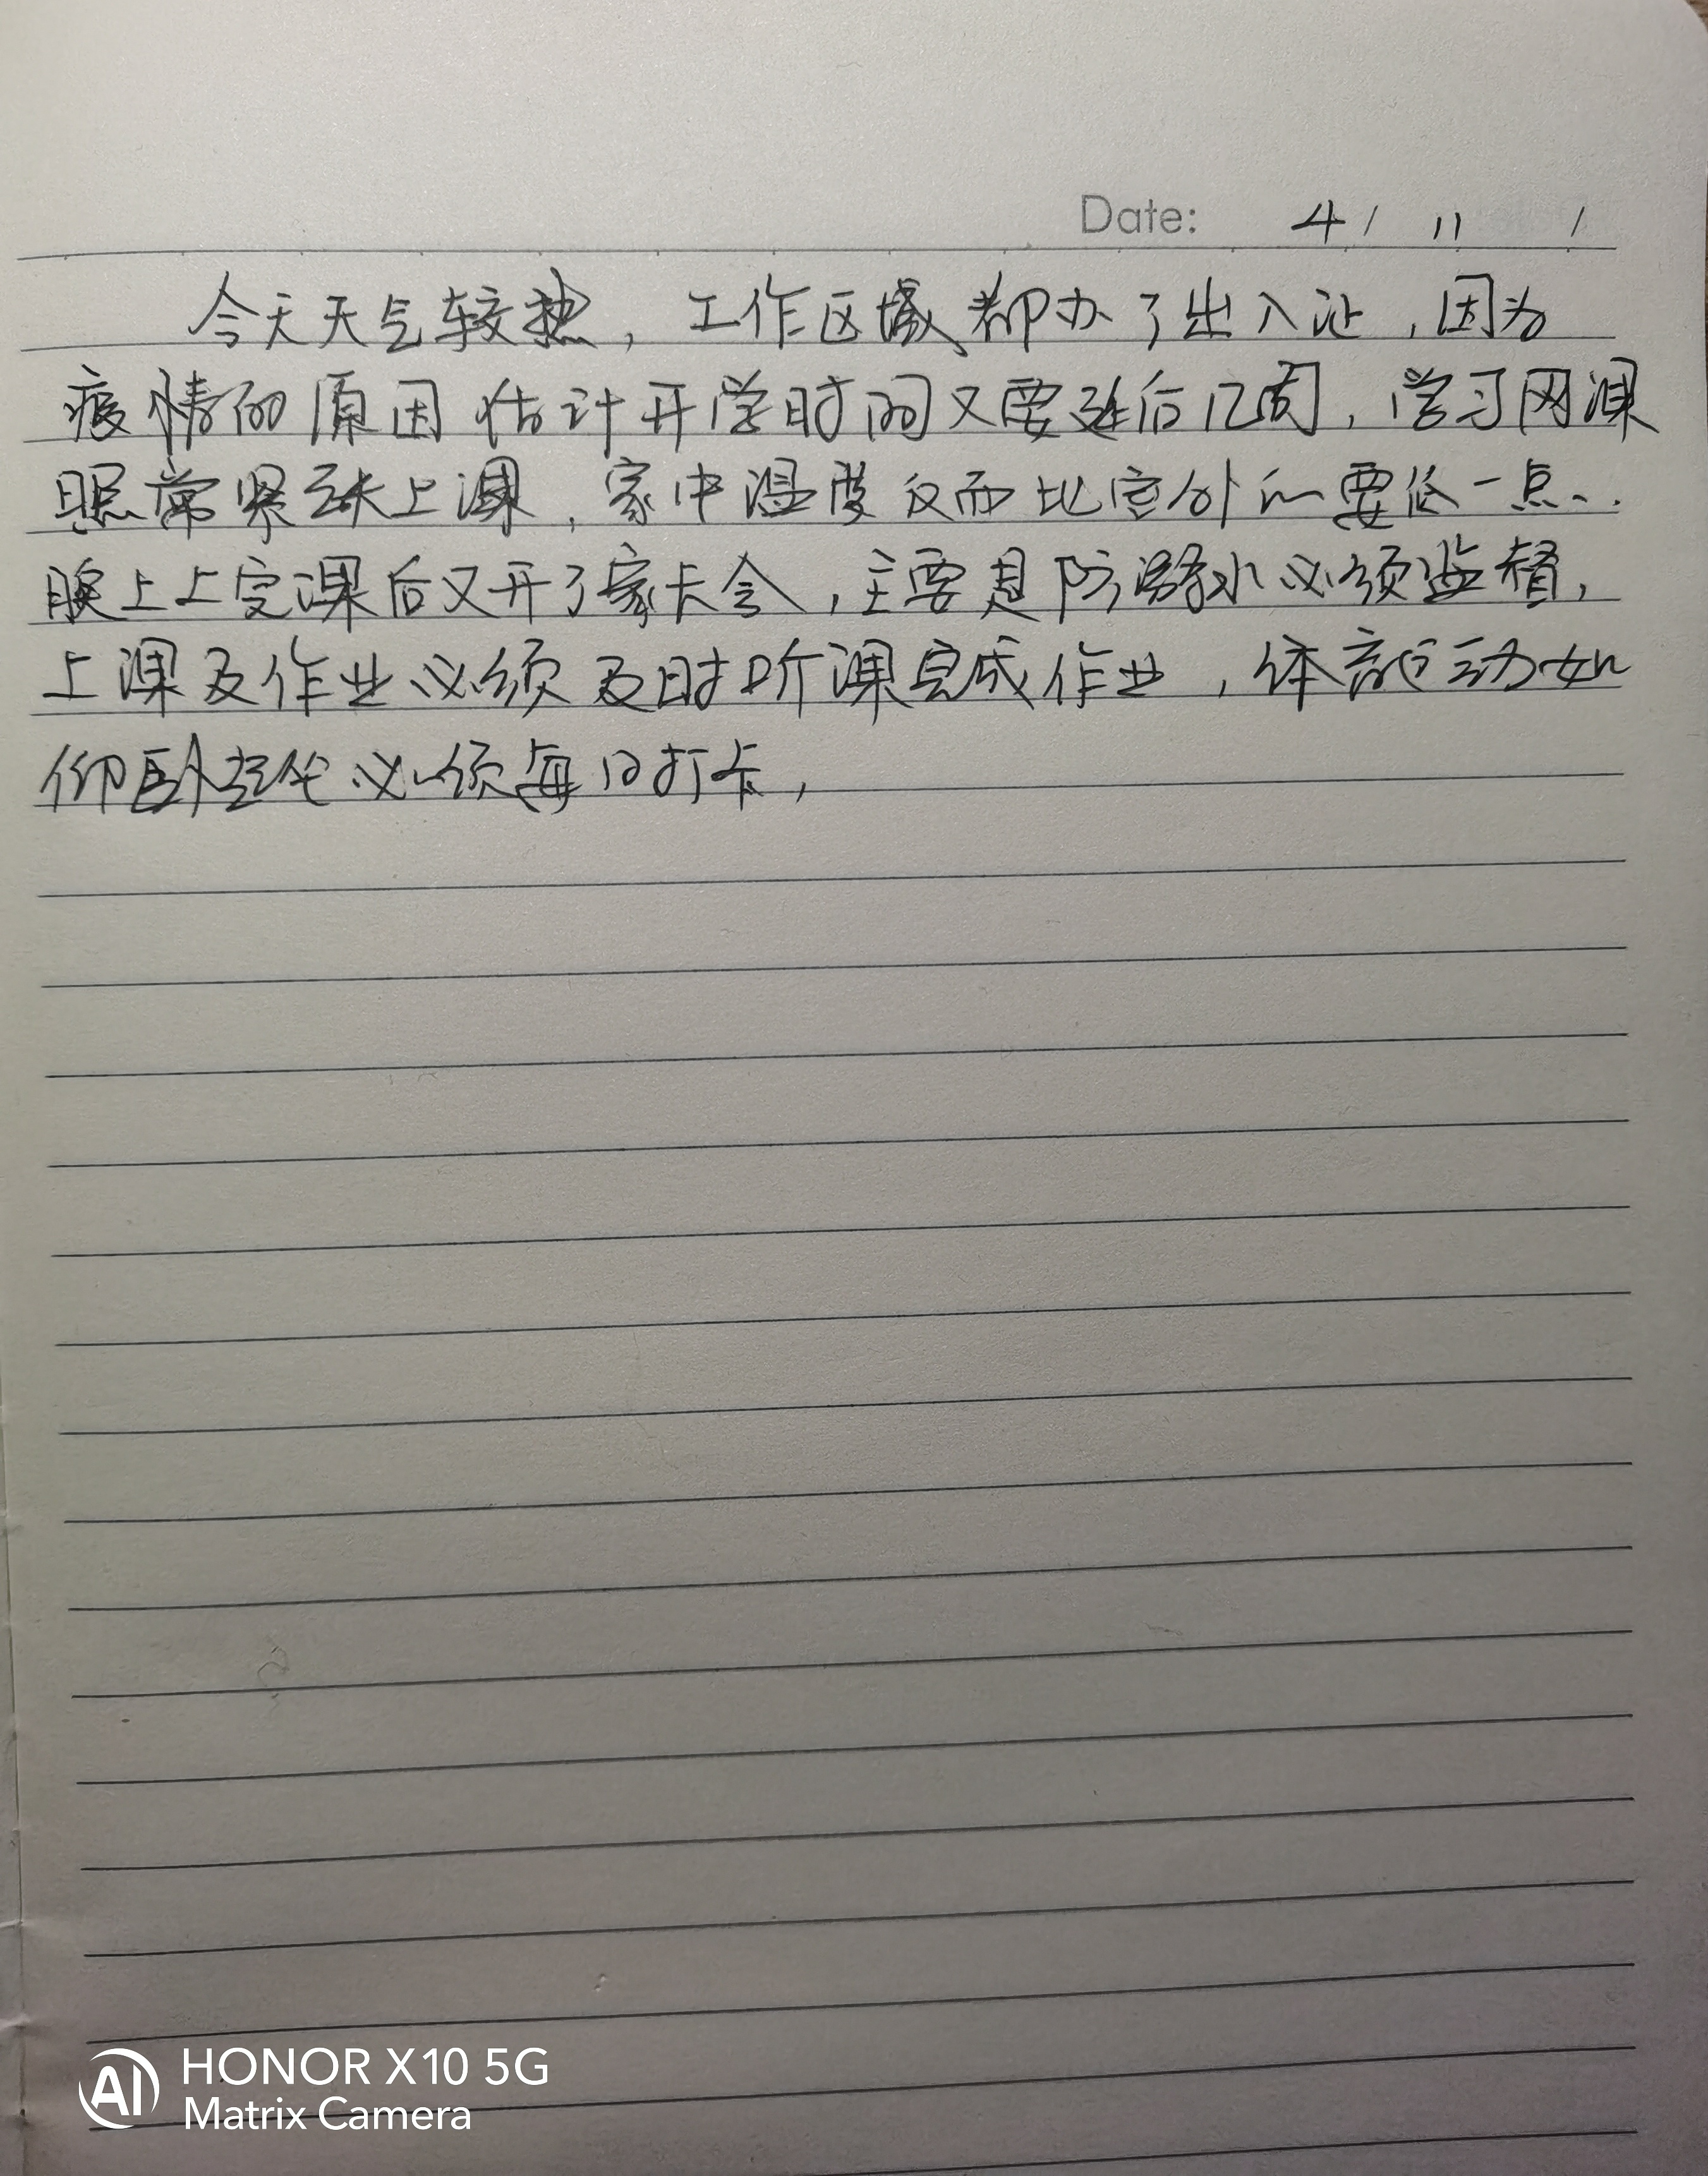 Date: 4 / 11 /
今天天气较热，工作区域都办了出入证，因为
疫情的原因估计开学时间又要延后几周，学习网课
照常紧张上课，家中温度反而比室外的要低一点..
晚上上完课后又开了家长会，主要是防溺水必须监督，
上课及作业必须及时听课完成作业，体育运动如
仰卧起坐必须每日打卡，
AI HONOR X10 5G
Matrix Camera